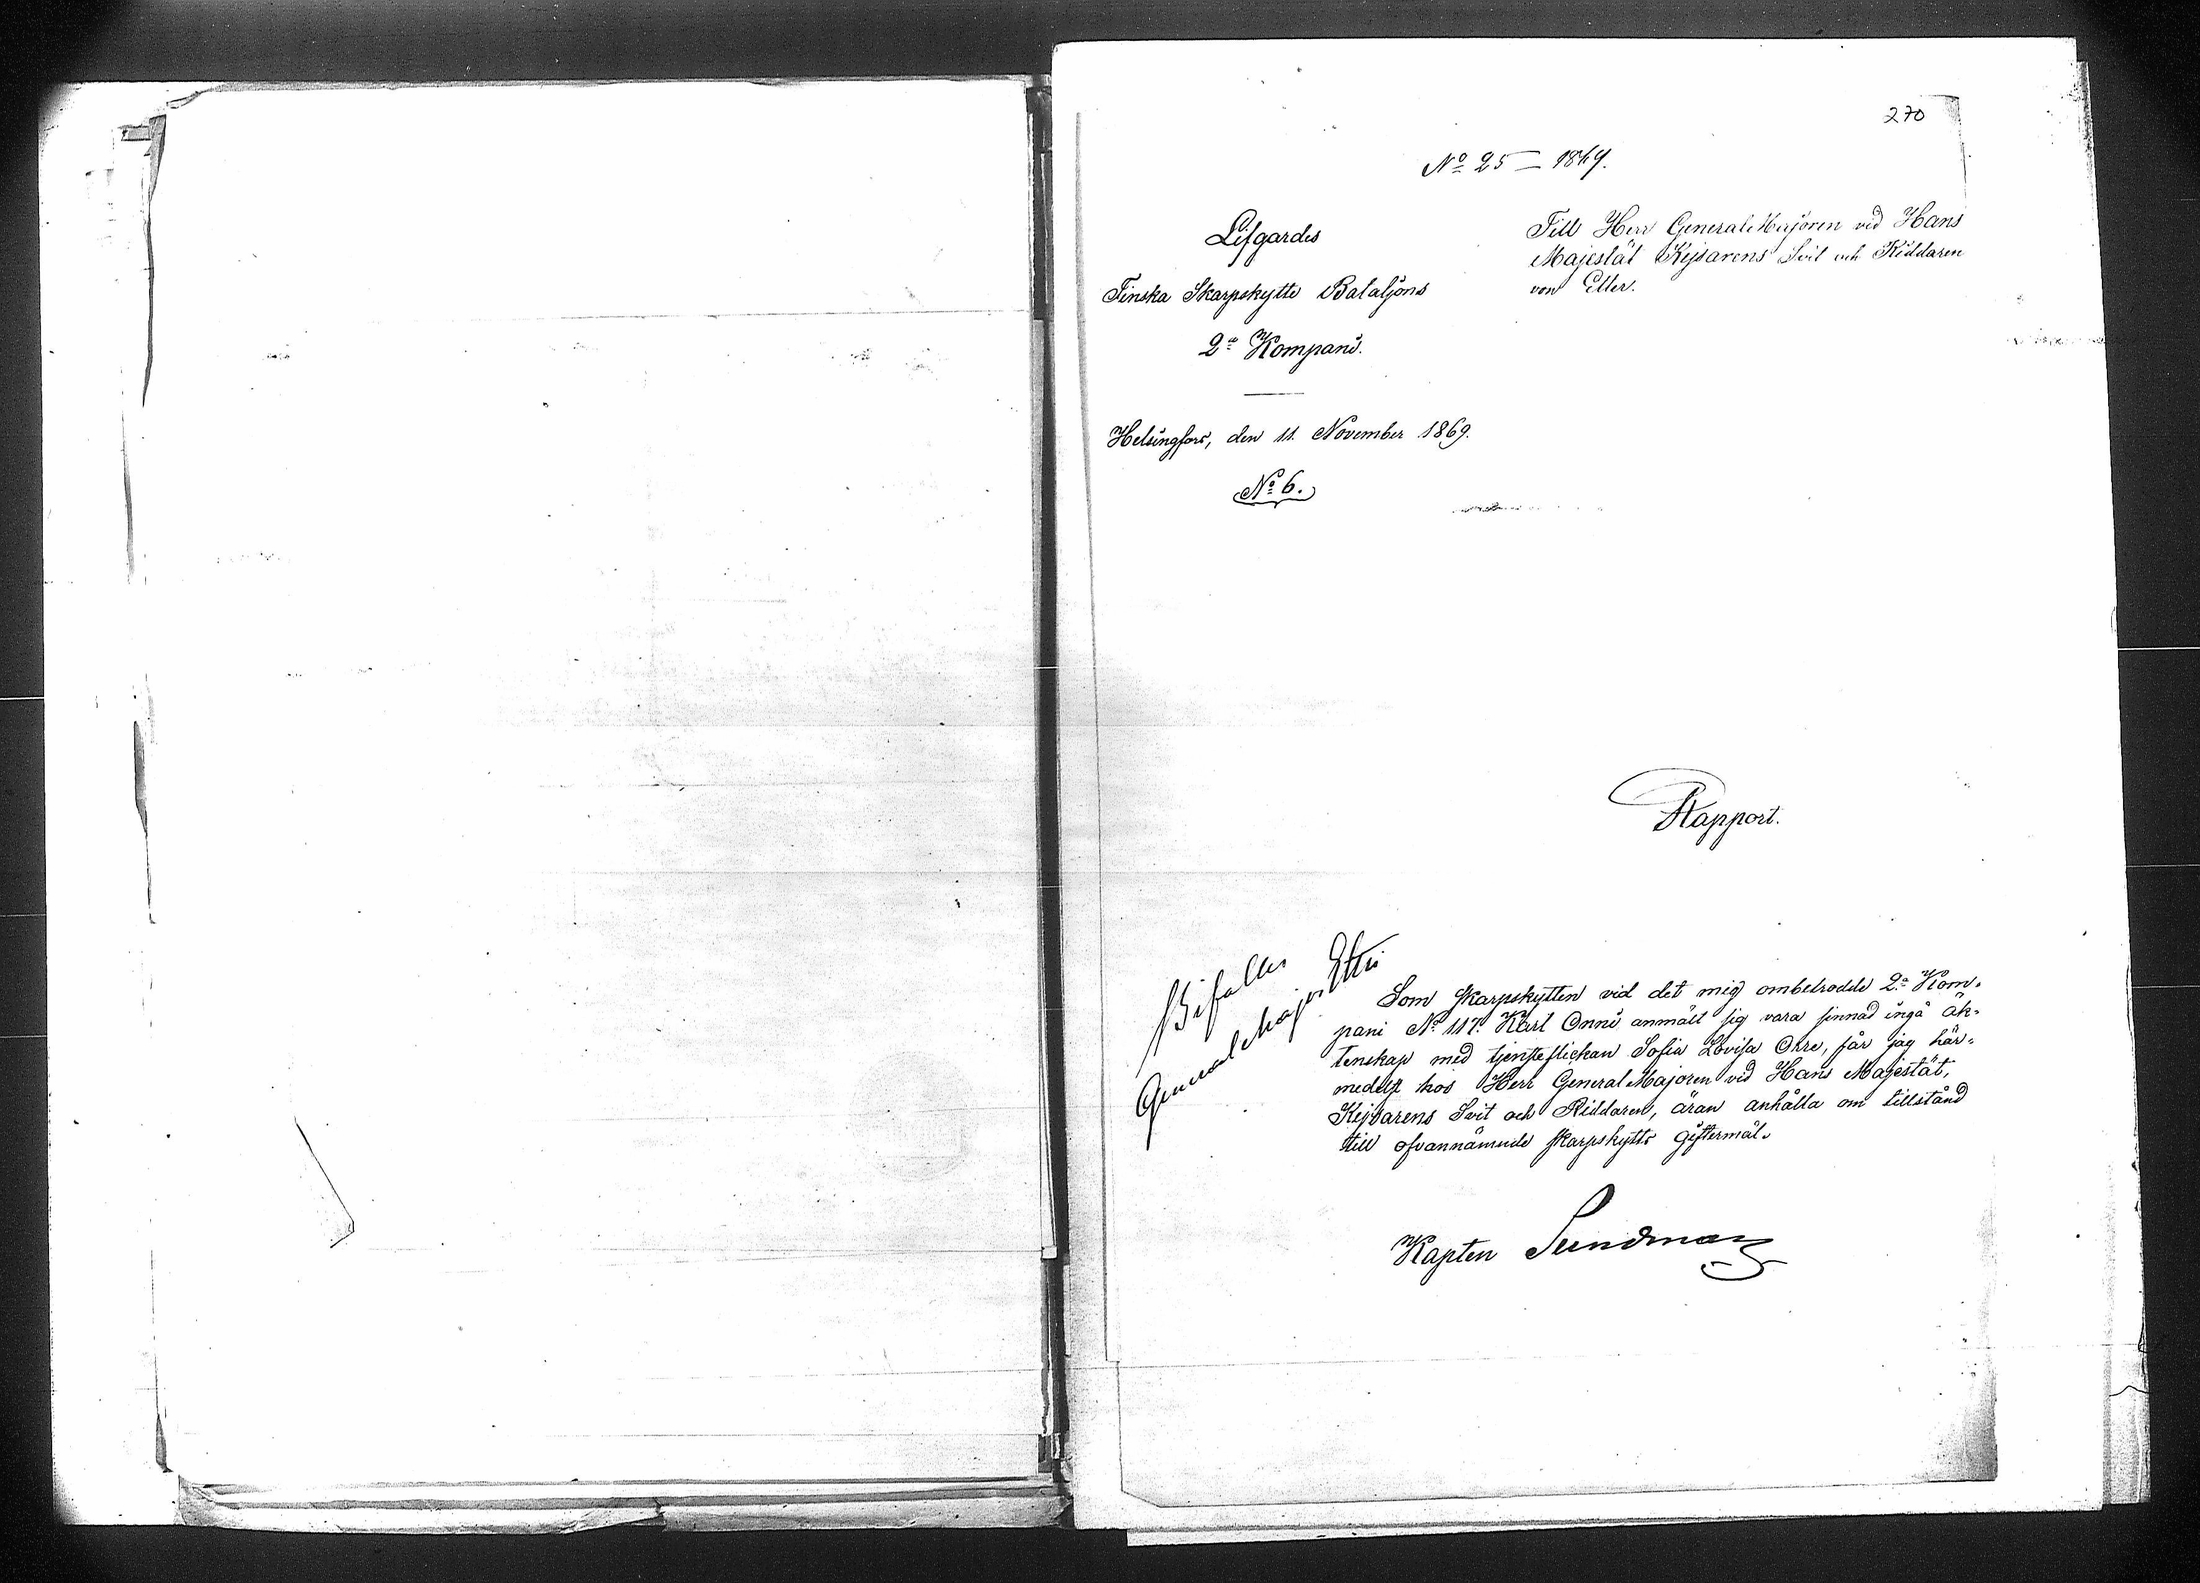 270
No 25 — 1869.
Lifgardes
Finska Skarpskytte Bataljons
2a Kompani.
Helsingfors, den 11. November 1869.
No 6.
Till Herr GeneralMajoren vid Hans
Majestät Kejsarens Svit och Riddaren
von Etter.
Rapport.
Bifalles
GeneralMajor Etter
Som Skarpskytten vid det mig ombetrodde 2a Kom-
pani No 117. Karl Onni anmält sig vara sinnad ingå äk-
tenskap med tjensteflickan Sofia Lovisa Orre, får jag här-
medelst hos Herr GeneralMajoren vid Hans Majestät,
Kejsarens Svit och Riddaren, äran anhålla om tillstånd
till ofvannämnde Skarpskytts giftermål.
Kapten Sundman